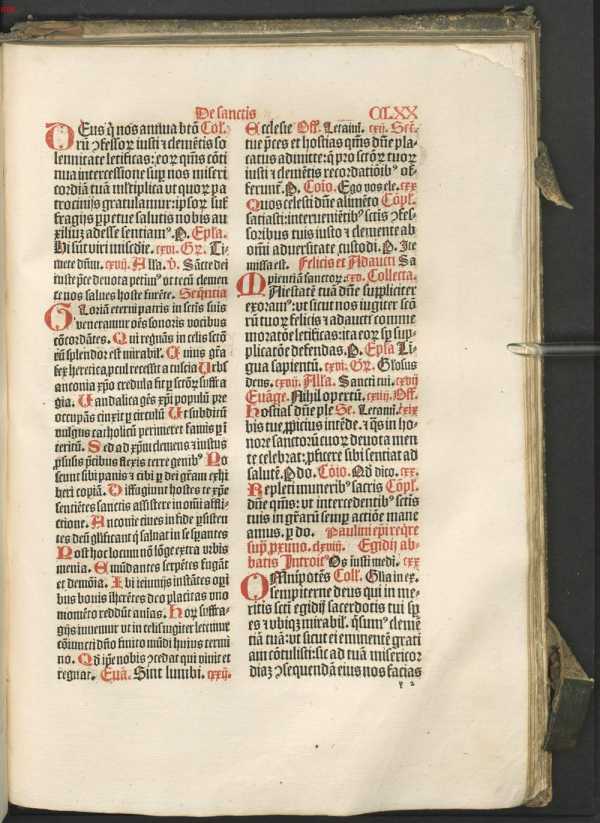 De sanctis CLXX
DEus q̃ nos annua btõ Coll.
rũ ꝯfessoꝝ iusti ⁊ clemẽtis so
lennitate letificas: eoꝝ q̃ms cõti
nua intercessione sup nos miseri
cordiã tuã mĩtiplica vt quoꝝ pa
trocinijs gratulamur: ipsoꝝ suf
fragijs ꝑpetue salutis nobis au
xiliũ adesse sentiamꝰ. P. Epĩa.
Hi sũt viri misc̃die. cxvi. Gꝝ. Ti
mete dñm. cxvij. Alla. v. Sãcte dei
iuste p̃ce deuota petimꝰ vt tecũ clemen
te nos salues hoste furẽte. Sequẽtia
GLoriã eterni patris in sctis suis
veneramur oẽs sonoris vocibus
cõcordãtes. Qui regnãs in celis sctõ
rũ splendor est mirabił.
antonia xp̃o credula fit ꝑ sctõꝝ suffra
gia. Uandalica gẽs xp̃m populũ pre
occupãs cinxit ꝑ circulũ Ut subditũ
vulgus catholicũ perimeret famis ꝑ ĩ
teritũ. Sed ad xp̃m clemens ⁊ iustus
ꝓfusis p̃cibus flexis terre genibꝰ Po
scunt sibi panis ⁊ cibi ꝑ dei grãm exhi
beri copiã. Diffugiunt hostes te xp̃e
sentiẽtes sanctis assistere in om̃i affli
ctione. Anconie ciues in fide ꝑsisten
tes deũ glificant q̃ saluat in se sperantes
Post hoc locum nõ lõge extra vrbis
menia. Emũdantes serpẽtes fugãt
et demõia. Ibi ieiunijs instãtes oꝝi
bus bonis ihẽrẽtes deo placitas vno
momẽto reddũt aĩas. Hoꝝ suffra
gijs iuuemur vt in celis mgiter letemur
cõiuncti dño finito mũdi huius termi
no. Qd ip̃e nobis ꝯcedat qui viuit et
regnat. Euã. Sint lumbi. cxxij.
Ecclesie Off. Letamĩ. cxij. Secr̃.
tue p̃ces et hostias q̃ms dñe pla
catus admitte: q̃ pro sctõꝝ tuoꝝ
iusti ⁊ clemẽtis recordatiõibꝰ of
ferunt̃. P. Cõio. Ego vos ele. cxx
Quos celesti dñe alimẽto Cõpł.
satiasti: interueniẽtibꝰ sctis ꝯfes
soribus tuis iusto ⁊ clemente ab
om̃i aduersitate custodi. P. Ite
missa est. Felicis et Adaucti Sa
pientiam sanctoꝝ. cxv. Collecta.
MAiestatẽ tuã dñe suppliciter
exoramꝰ: vt sicut nos iugiter sctõ
rũ tuoꝝ felicis ⁊ adaucti comme
moratõe letificas: ita eoꝝ sp sup
plicatõe defendas. P. Epĩa Li
gua sapientũ. cxvi. Gꝝ. Gl̃osus
deus. cxvij. Alla. Sancti tui. cxvij
Euãge. Nihil opertũ. cxiiij. Off.
Hostias dñe ple Se. Letamĩ. cxix
bis tue ꝓpicius intẽde. ⁊ q̃s in ho
nore sanctorũ tuoꝝ deuota men
te celebrat: ꝓficere sibi sentiat ad
salutẽ. P do. Cõio. Qd dico. cxx.
Repleti muneribꝰ sacris Cõpł.
dñe q̃ms: vt intercedentibꝰ sctis
tuis in grãrũ semꝑ actiõe mane
amus. ꝑ do. Paulini ep̃i reqre
sup̃ pximo. clxviij. Egidij ab
batis Introitꝰ Os iusti medi. cxx
OMnipotẽs Coll. Glĩa in ex.
sempiterne deus qui in me
ritis scti egidij sacerdotis tui sp̃
es ⁊ vbiqꝫ mirabił. q̃sumꝰ cleme
tiã tuã: vt sicut ei eminentẽ grati
am cõtulisti: sic ad tuã misericor
diaꝫ ꝯsequendã eius nos facias
y 2